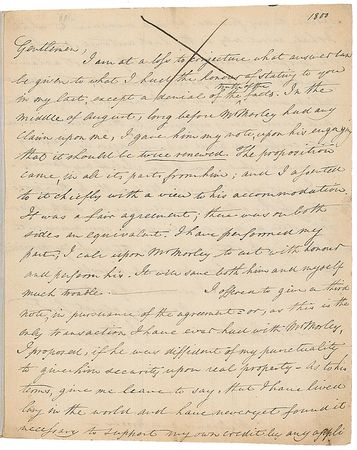 1800
Gentlemen,
I am at a loss to conjecture what answer can
be given to what I had the honour of stating to you
in my last, except a denial of the truth of the facts. In the
middle of August, long before Mr Morley had any
claim upon me, I gave him my note, upon his engaging
that it should be twice renewed. The proposition
came, in all its parts, from him; and I assented
to it chiefly with a view to his accommodation.
It was a fair agreement; there was on both
sides an equivalent. I have performed my
part; I call upon Mr Morley to act with honour
and perform his. It will save both him and myself
much trouble. I offered to give a third
note, in pursuance of the agreement: or, as this is the
only transaction I have ever had with Mr Morley,
I proposed, if he was diffident of my punctuality
to give him security upon real property. As to his
terms, give me leave to say, that I have lived
long in the world and have never yet found it
necessary to support my own credit by any appli